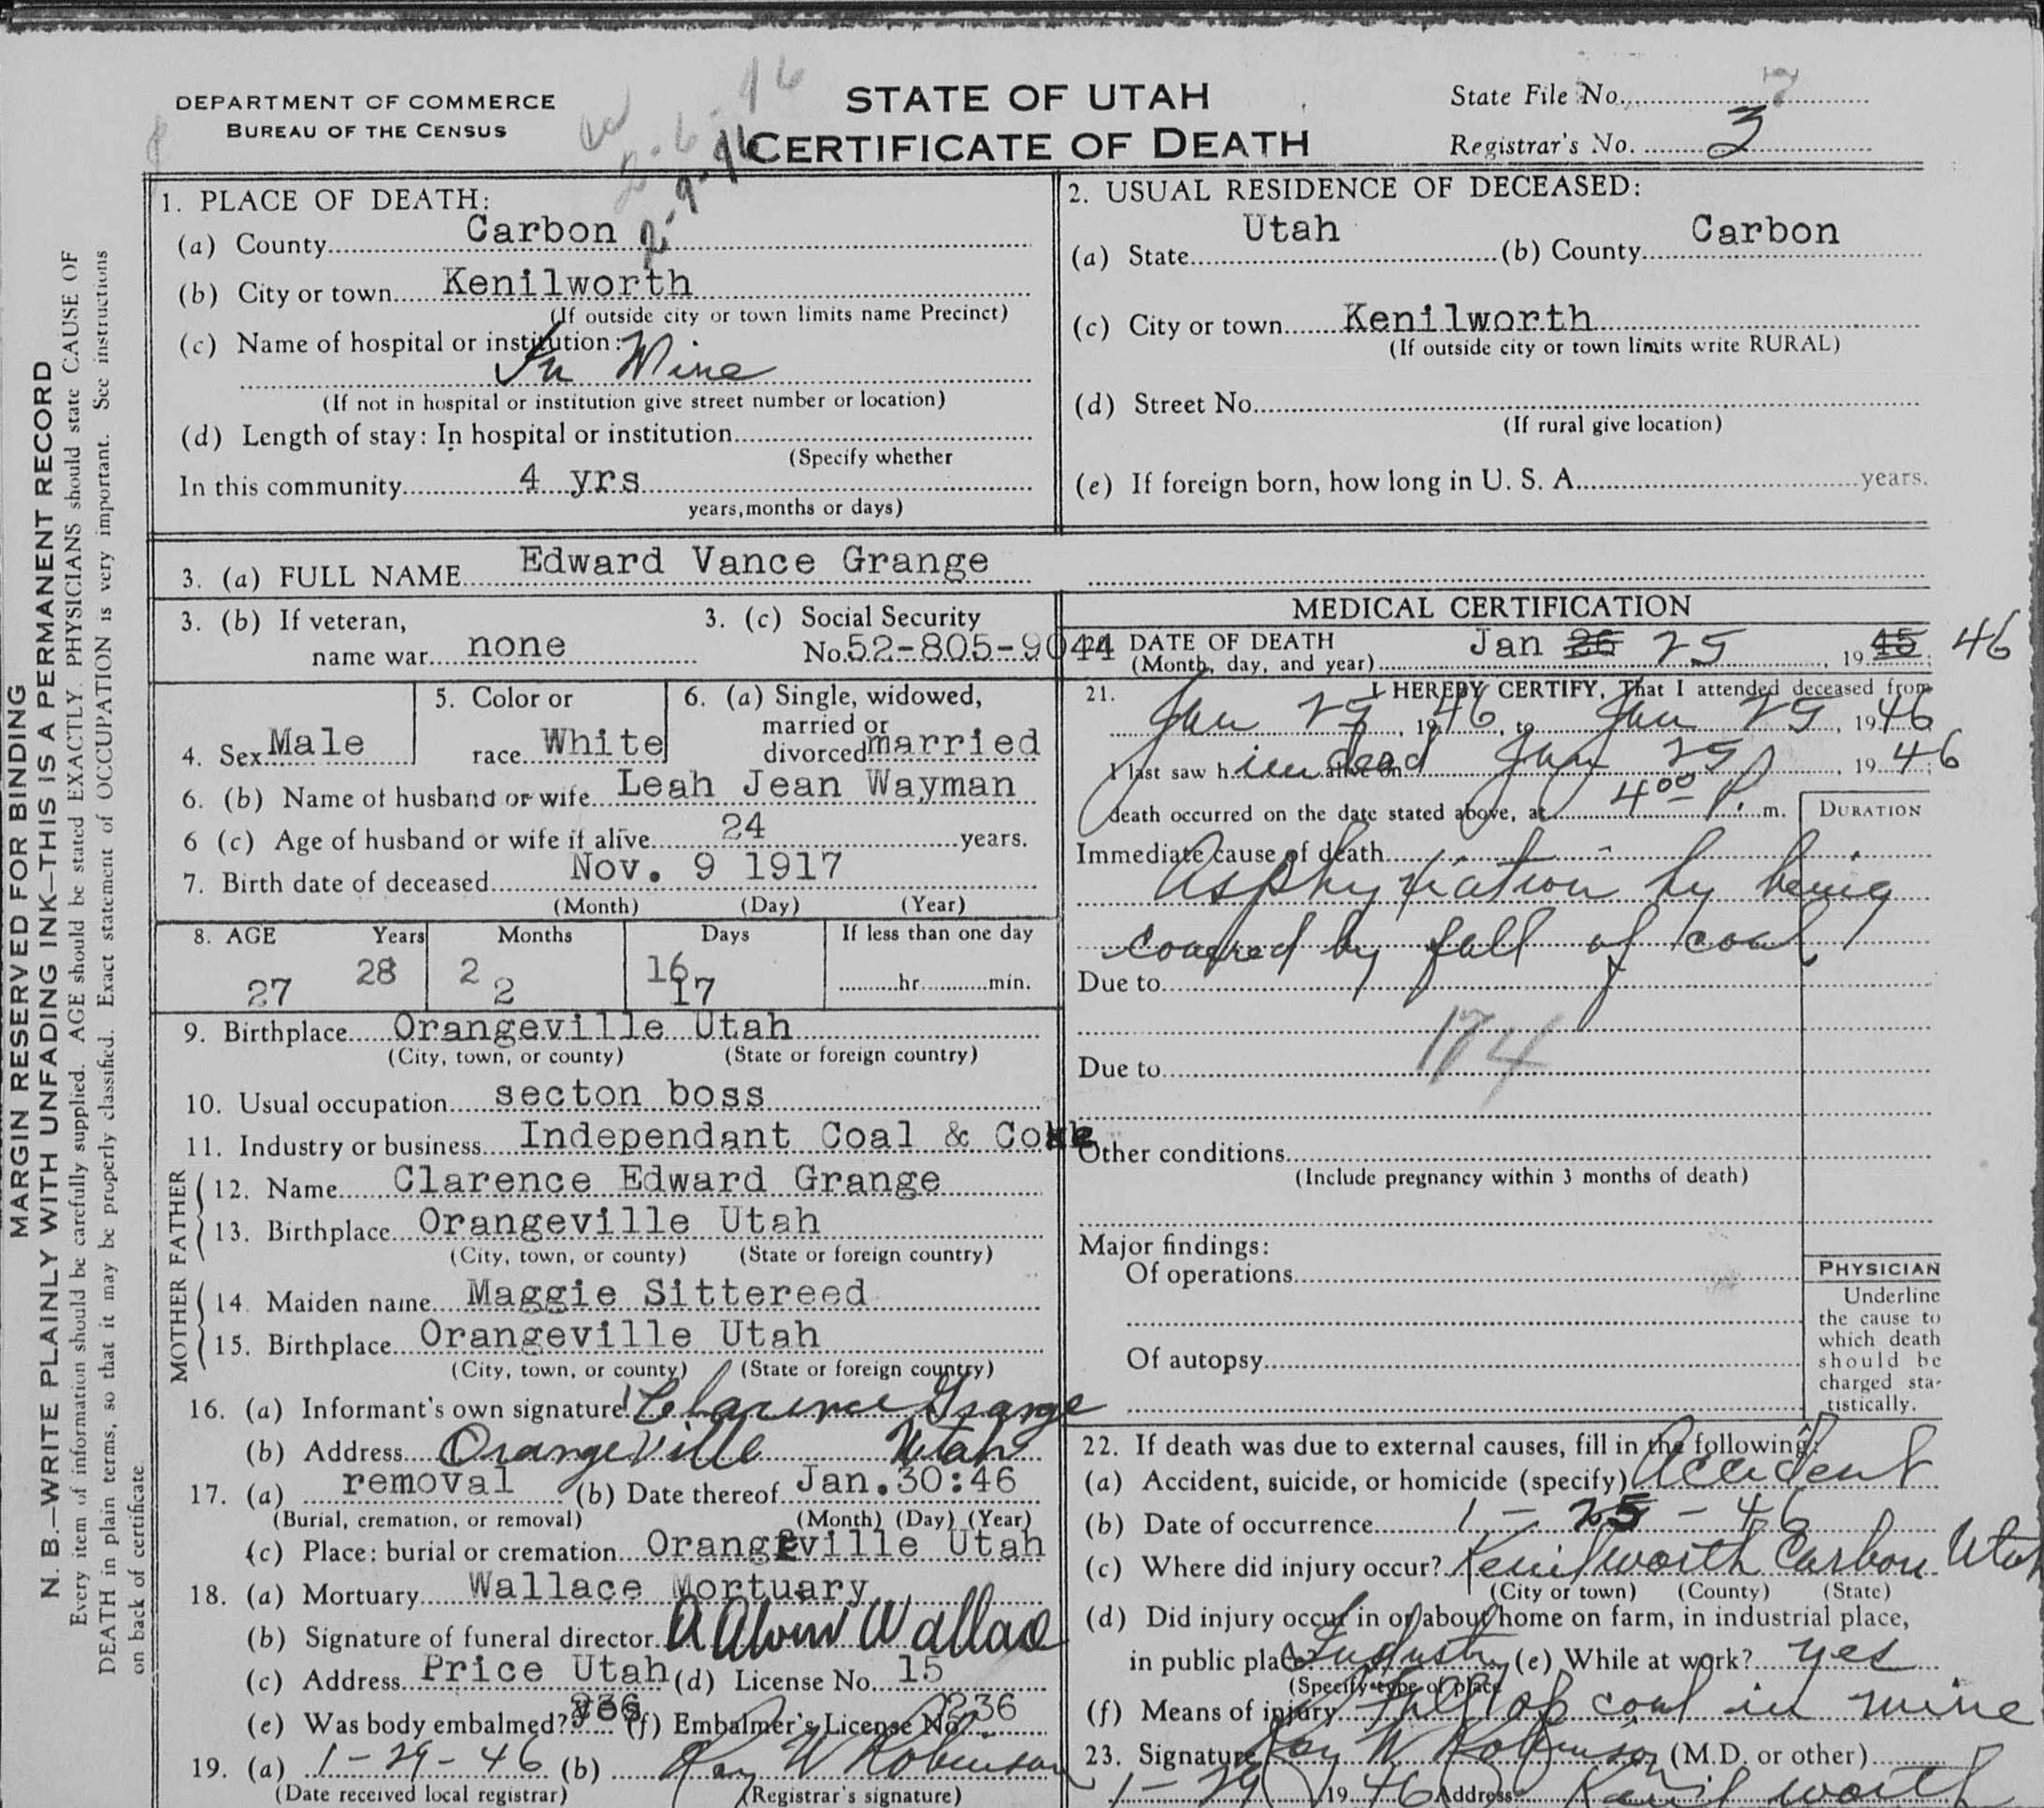 DEPARTMENT OF COMMERCE
BUREAU OF THE CENSUS
STATE OF UTAH
CERTIFICATE OF DEATH
State File No. 7
Registrar's No. 3
MARGIN RESERVED FOR BINDING
N. B.—WRITE PLAINLY WITH UNFADING INK—THIS IS A PERMANENT RECORD
Every item of information should be carefully supplied. AGE should be stated EXACTLY. PHYSICIANS should state CAUSE OF
DEATH in plain terms, so that it may be properly classified. Exact statement of OCCUPATION is very important. See instructions
on back of certificate.
1. PLACE OF DEATH:
(a) County Carbon
(b) City or town Kenilworth
(If outside city or town limits name Precinct)
(c) Name of hospital or institution:
In Mine
(If not in hospital or institution give street number or location)
(d) Length of stay: In hospital or institution
(Specify whether
In this community 4 yrs
years, months or days)
2. USUAL RESIDENCE OF DECEASED:
(a) State Utah (b) County Carbon
(c) City or town Kenilworth
(If outside city or town limits write RURAL)
(d) Street No.
(If rural give location)
(e) If foreign born, how long in U. S. A. years.
3. (a) FULL NAME Edward Vance Grange
3. (b) If veteran,
name war none
3. (c) Social Security
No. 52-805-9044
4. Sex Male
5. Color or
race White
6. (a) Single, widowed,
married or
divorced married
6. (b) Name of husband or wife Leah Jean Wayman
6 (c) Age of husband or wife if alive 24 years.
7. Birth date of deceased Nov. 9 1917
(Month) (Day) (Year)
8. AGE Years Months Days If less than one day
27 28 2 2 16 17 hr. min.
9. Birthplace Orangeville Utah
(City, town, or county) (State or foreign country)
10. Usual occupation secton boss
11. Industry or business Independant Coal & Coke
FATHER
12. Name Clarence Edward Grange
13. Birthplace Orangeville Utah
(City, town, or county) (State or foreign country)
MOTHER
14. Maiden name Maggie Sittereed
15. Birthplace Orangeville Utah
(City, town, or county) (State or foreign country)
16. (a) Informant's own signature Clarence Grange
(b) Address Orangeville Utah
17. (a) removal (b) Date thereof Jan. 30:46
(Burial, cremation, or removal) (Month) (Day) (Year)
(c) Place: burial or cremation Orangeville Utah
18. (a) Mortuary Wallace Mortuary
(b) Signature of funeral director A Alvin Wallace
(c) Address Price Utah (d) License No. 15
(e) Was body embalmed? yes (f) Embalmer's License No. 236
19. (a) 1-29-46 (b) Roy W Robinson
(Date received local registrar) (Registrar's signature)
MEDICAL CERTIFICATION
20. DATE OF DEATH
(Month, day, and year) Jan 26 25, 19 45 46
21. I HEREBY CERTIFY, That I attended deceased from
Jan 29, 1946, to Jan 29, 1946
I last saw him dead Jan 29, 1946;
death occurred on the date stated above, at 4:00 P. m.
DURATION
Immediate cause of death
Asphyxiation by being
covered by fall of coal
Due to
174
Due to
Other conditions
(Include pregnancy within 3 months of death)
Major findings:
Of operations
Of autopsy
PHYSICIAN
Underline
the cause to
which death
should be
charged sta-
tistically.
22. If death was due to external causes, fill in the following:
(a) Accident, suicide, or homicide (specify) Accident
(b) Date of occurrence 1-25-46
(c) Where did injury occur? Kenilworth Carbon Utah
(City or town) (County) (State)
(d) Did injury occur in or about home on farm, in industrial place,
in public place? Industry (e) While at work? yes
(Specify type of place
(f) Means of injury Fall of coal in mine
23. Signature Roy W Robinson (M.D. or other)
1-29 1946 Address Kenilworth